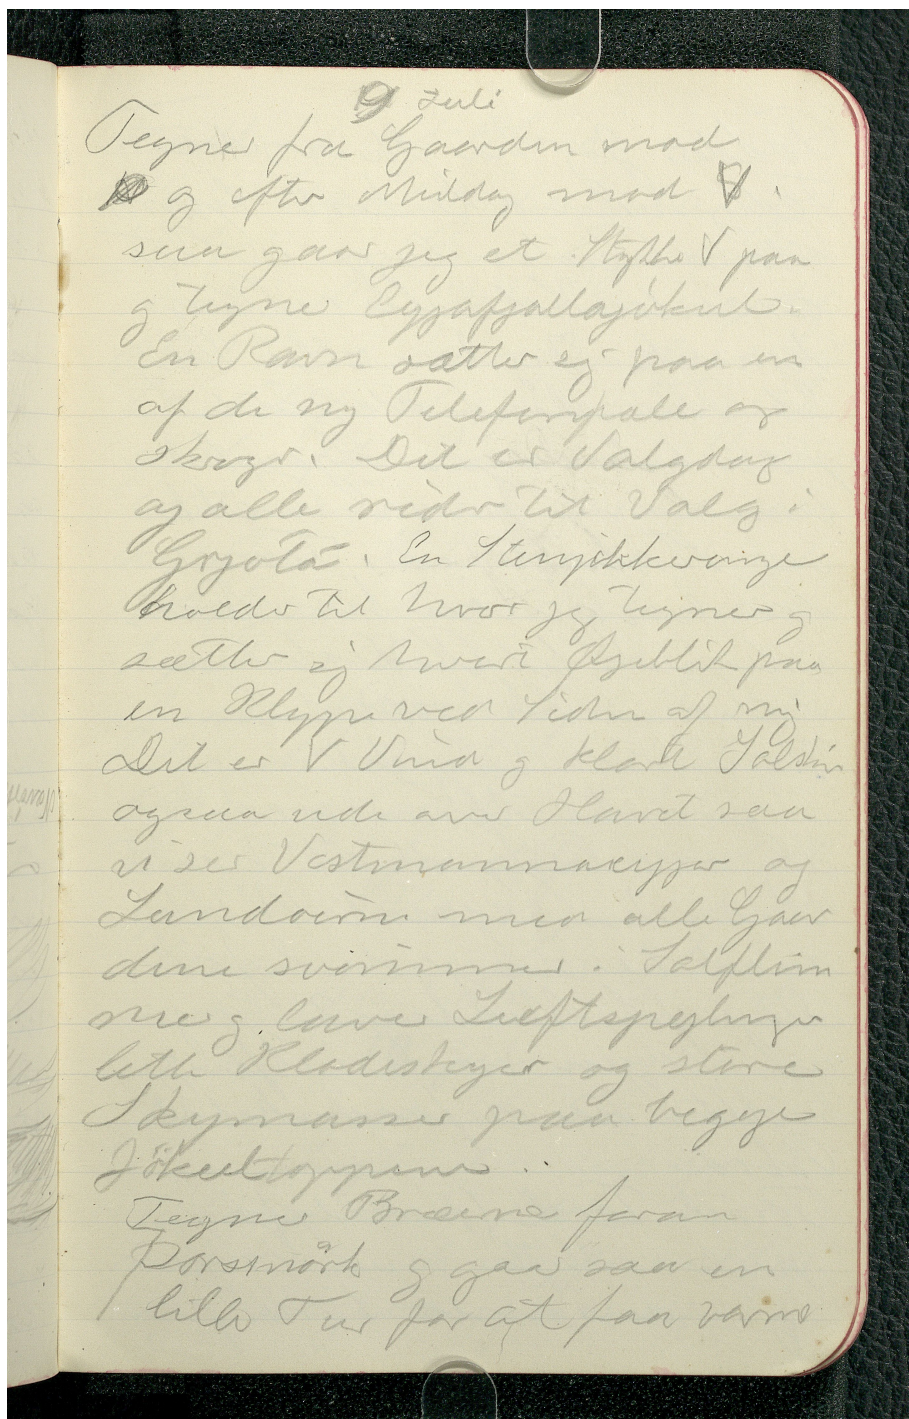 9 Juli
Tegner fra Gaarden mod
og efter Middag mod V.
saa gaar jeg et Stykke V paa
og tegner Eyjafjallajökul.
En Ravn sætter sig paa en
af de ny Telefonpæle og
skriger. Det er Valgdag
og alle rider til Valg i
Grjotá. En Stenpikkerunge
holder til hvor jeg tegner og
sætter sig hvert Øjeblik paa
en Klippe ved Siden af mig
Det er V Vind og klart Solskin
ogsaa ude over Havet saa
vi ser Vestmannaeyjar og
Landøerne med alle Gaar
dene svømmer i Solflim
mer og laver Luftspejlinger
lette Klodeskyer og store
Skymasser paa begge
Jökultoppene.
Tegner Bræerne foran
Þorsmörk og gaar saa en
lille Tur for at faa varme